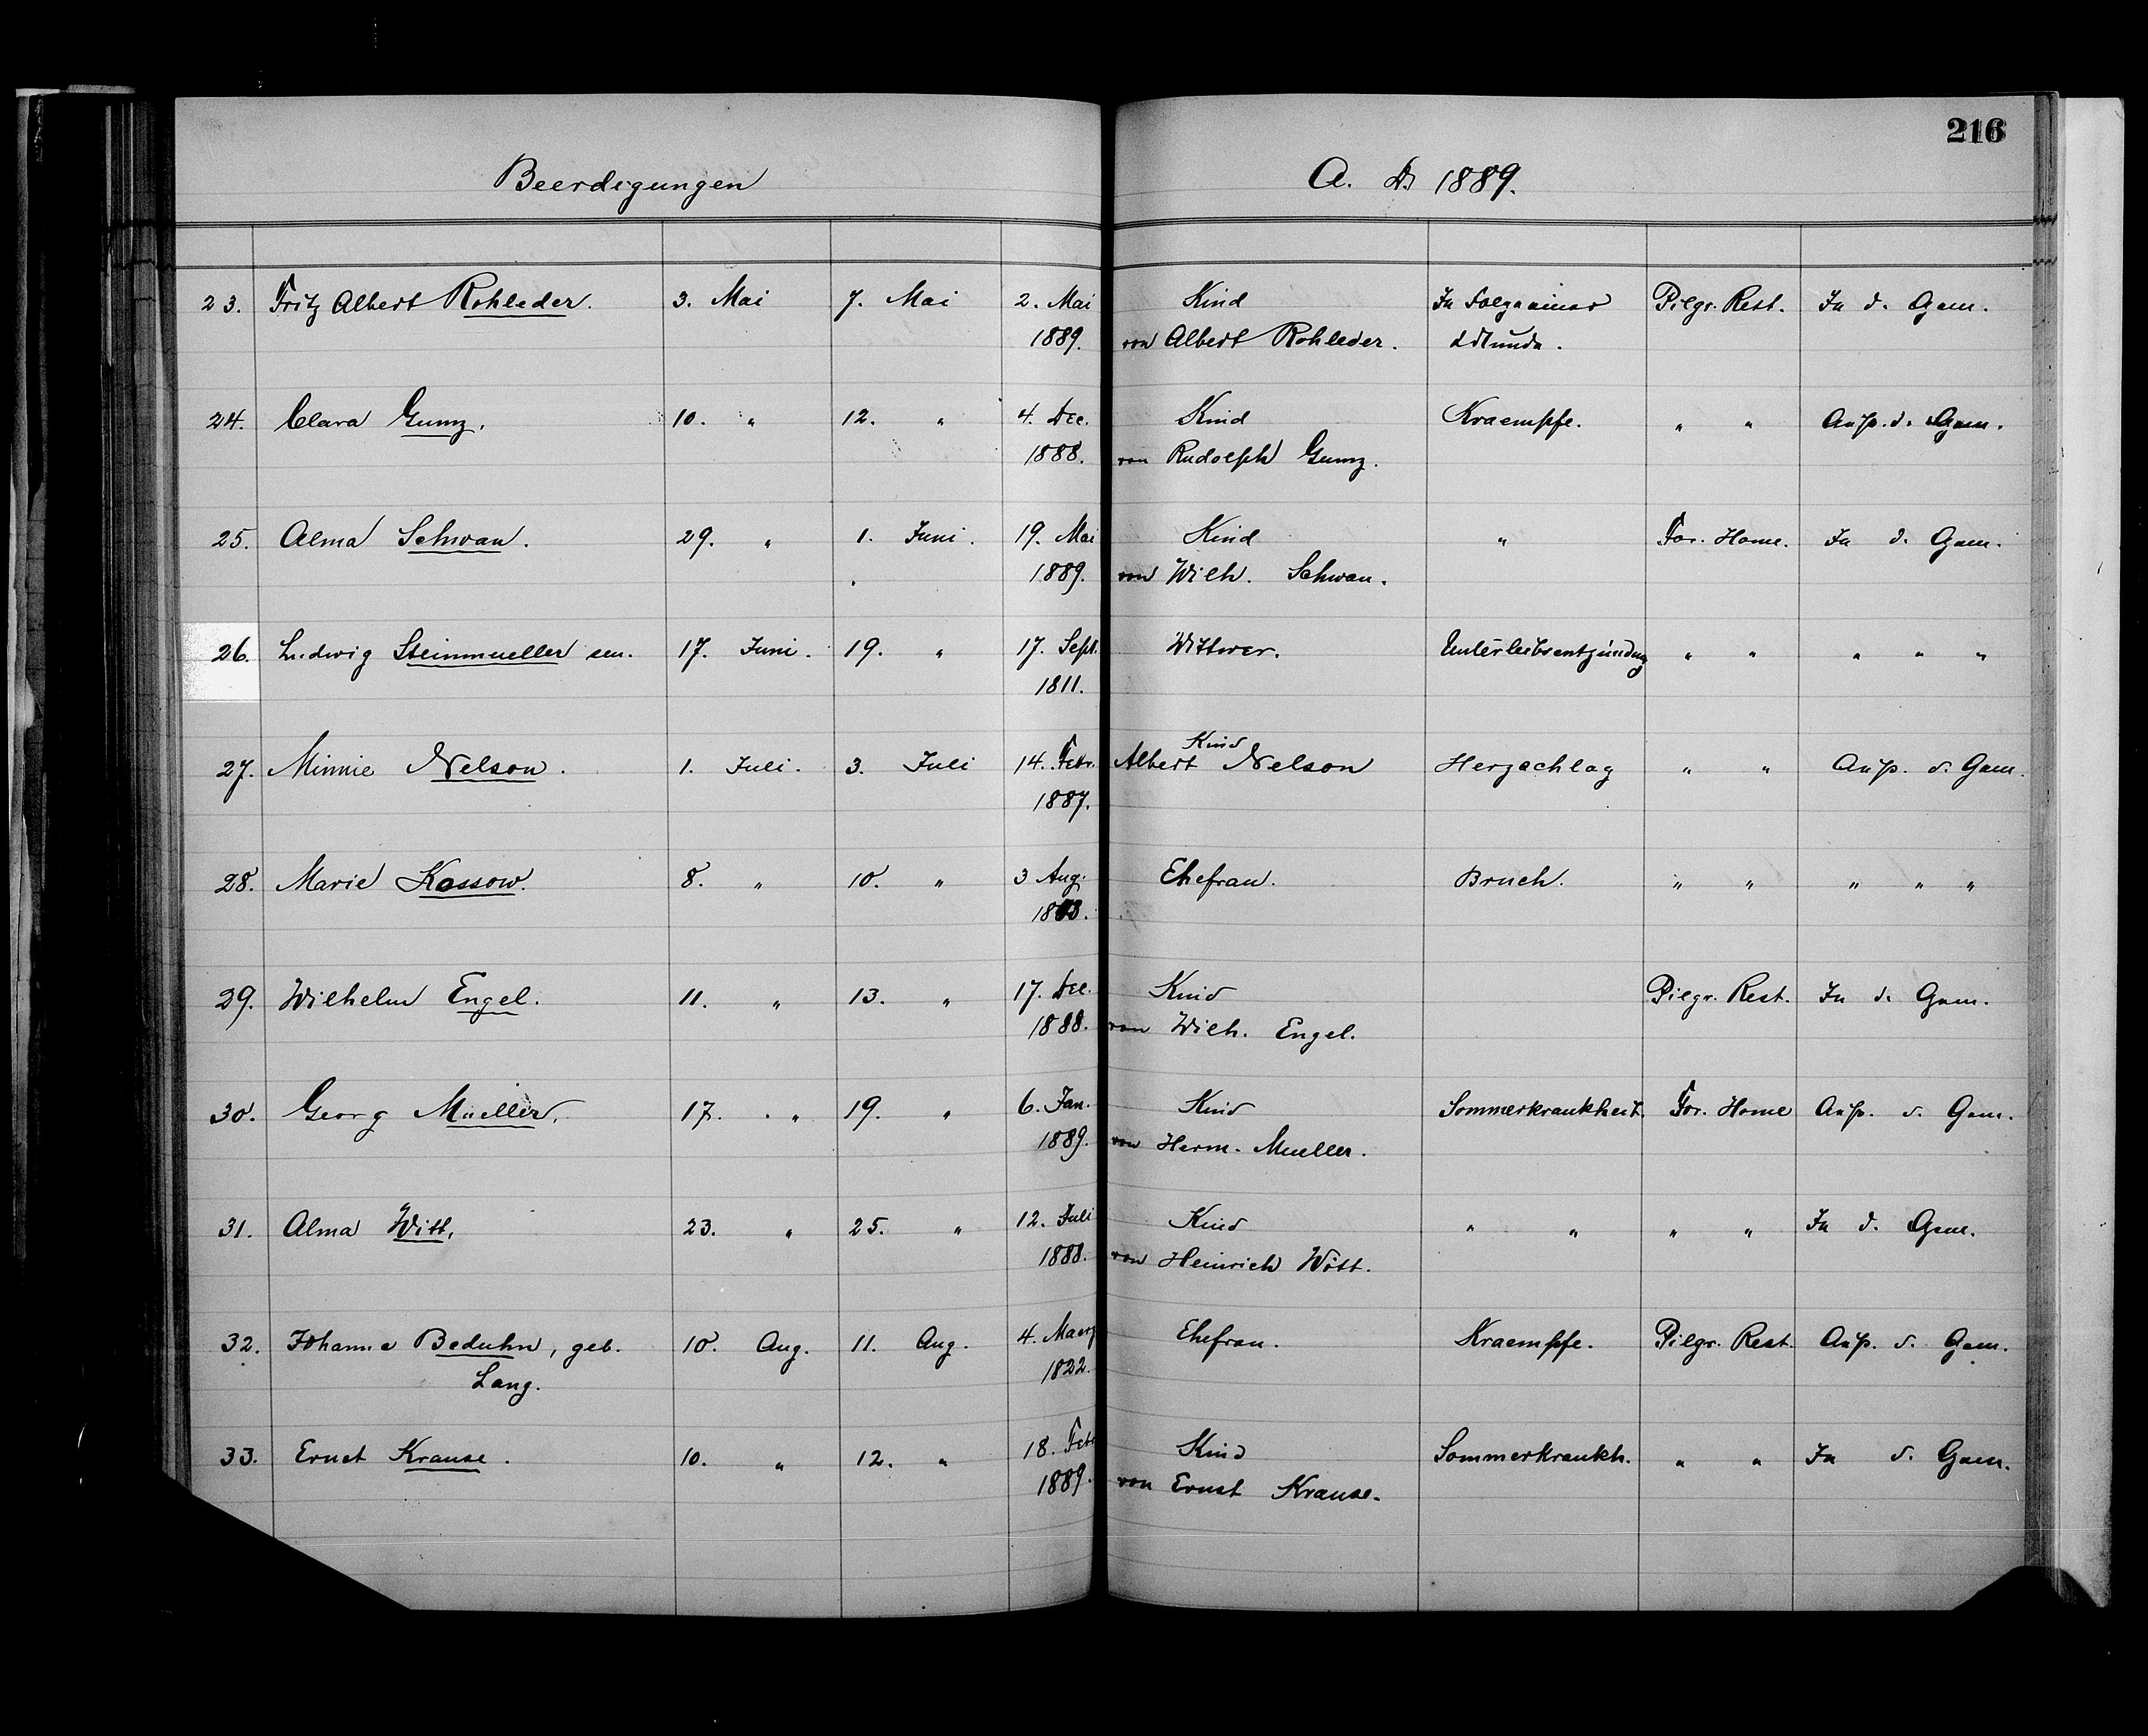 216
Beerdigungen A. D. 1889.
23. Fritz Albert Rohleder. 3. Mai 7. Mai 2. Mai Kind In Folge einer Pilgr. Rest. In d. Gem.
1889. von Albert Rohleder.
24. Clara Gumz. 10. " 12. " 4. Dec. Kind Kraempfe. " " Ausz. d. Gem.
1888. von Rudolph Gumz.
25. Alma Schwan. 29. " 1. Juni. 19. Mai Kind " For. Home. In d. Gem.
1889. von Wilh. Schwan.
26. Ludwig Steinmueller sen. 17. Juni. 19. " 17. Sept. Wittwer. Unterleibsentzündung " " " " "
1811.
Kind
27. Minnie Nelson. 1. Juli. 3. Juli 14. Febr. Albert Nelson Herzschlag " " Ausz. d. Gem.
1887.
28. Marie Kossow. 8. " 10. " 3 Aug. Ehefrau. Bruch. " " " " "
29. Wilhelm Engel. 11. " 13. " 17. Dec. Kind Pilgr. Rest. In d. Gem.
1888. von Wilh. Engel.
30. Georg Mueller. 17. " 19. " 6. Jan. Kind Sommerkrankheit. For. Home Ausz. d. Gem.
1889. von Herm. Mueller.
31. Alma Witt. 23. " 25. " 12. Juli Kind " " " " In d. Gem.
1888. von Heinrich Witt.
32. Johanne Beduhn, geb. 10. Aug. 11. Aug. 4. Maerz Ehefrau. Kraempfe. Pilgr. Rest. Ausz. d. Gem.
Lang. 1822.
33. Ernst Krause. 10. " 12. " 18. Feb. Kind Sommerkrankh. " " In d. Gem.
1889. von Ernst Krause.